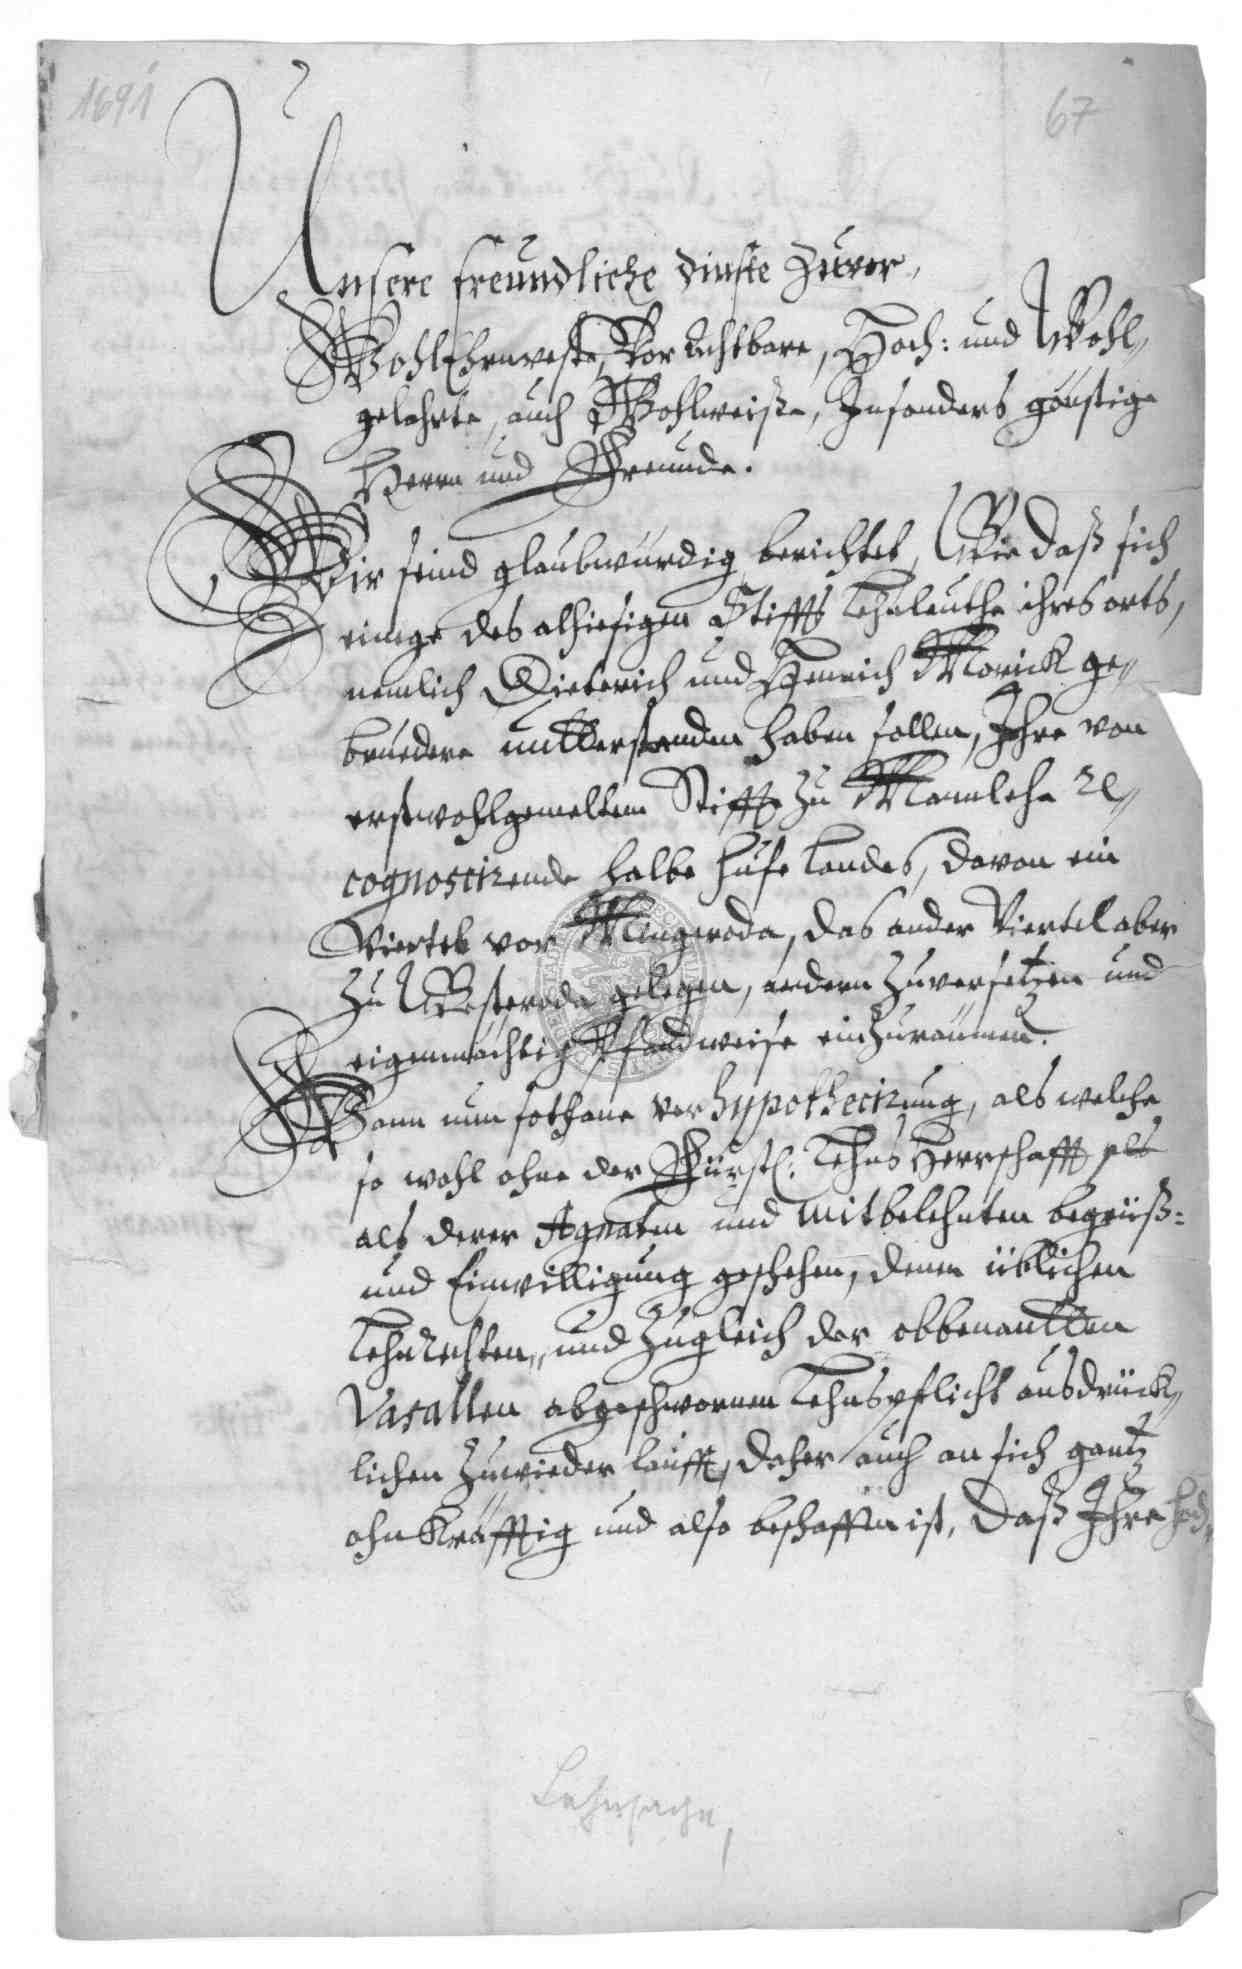 1691
67
Unsere freundliche dinste Zuvor,
WohlEhrnveste, Vor Achtbare, Hoch: und Wohl,,
gelahrte, auch Wohlweise, Insonders günstige
Herrn und Freunde.
Wir seind glaubwürdig berichtet, Wie daß sich
einige des alhiesigen Stiffts Lehnleuthe ihres orts,
nemlich Dieterich und Henrich Morick ge,,
bruedere unterstanden haben sollen, Ihre von
erstwohlgemeltem Stifft zu Mannlehn Re,,
cognoscirende halbe hufe Landes, davon ein
Viertel vor Mingeroda, das ander Viertel aber
zu Westeroda gelegen, andern Zuversetzen und
eigenmächtig Pfandweise einZuräumen.
Wann nun sothane Verhypothecirung, als welche
so wohl ohne der Fürstl: Lehns Herrschafft als
als derer Agnaten und mitbelehnten begrüß=
und Einwilligung geschehen, denen üblichen
Lehnrechten, und Zugleich der obbenantten
Vasallen abgeschwornen Lehnspflicht ausdrück,,
lichen Zuwieder laufft, daher auch an sich gantz
ohnkräfftig und also beschaffen ist, Daß Ihre
Lehnsache